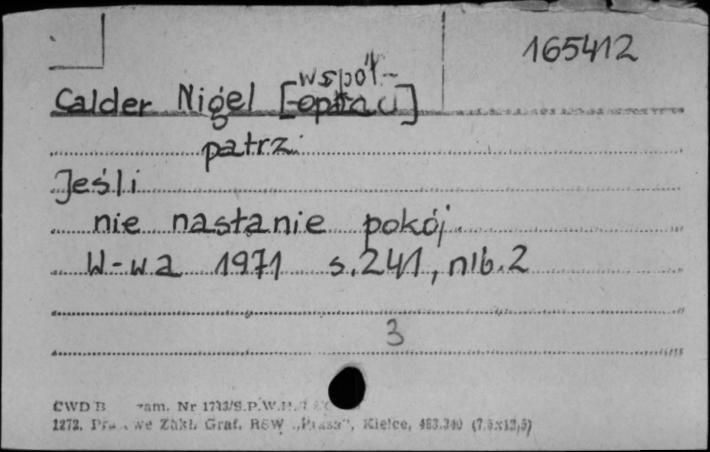 165412
współ-
Calder Nigel [oprac]
patrz
Jeśli
nie nastanie pokój.
W-wa 1971 s.241, nlb.2
3
CWD B zam. Nr 1713/S.P.W.H.
1272. Zakł. Graf. RSW „Prasa", Kielce, 483.340 (7,5x12,5)